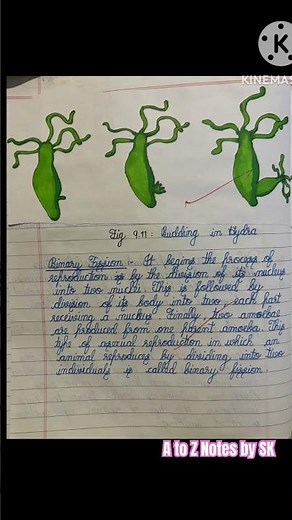 K
KINEMAS
Fig 9.11: Budding in Hydra
Binary Fission :- It begins the process of
reproduction is by the division of its nucleus
into two nuclei. This is followed by
division of its body into two, each part
receiving a nucleus. Finally, two amoebae
are produced from one parent amoeba. This
type of asexual reproduction in which an
animal reproduces by dividing into two
individuals is called binary fission.
A to Z Notes by SK